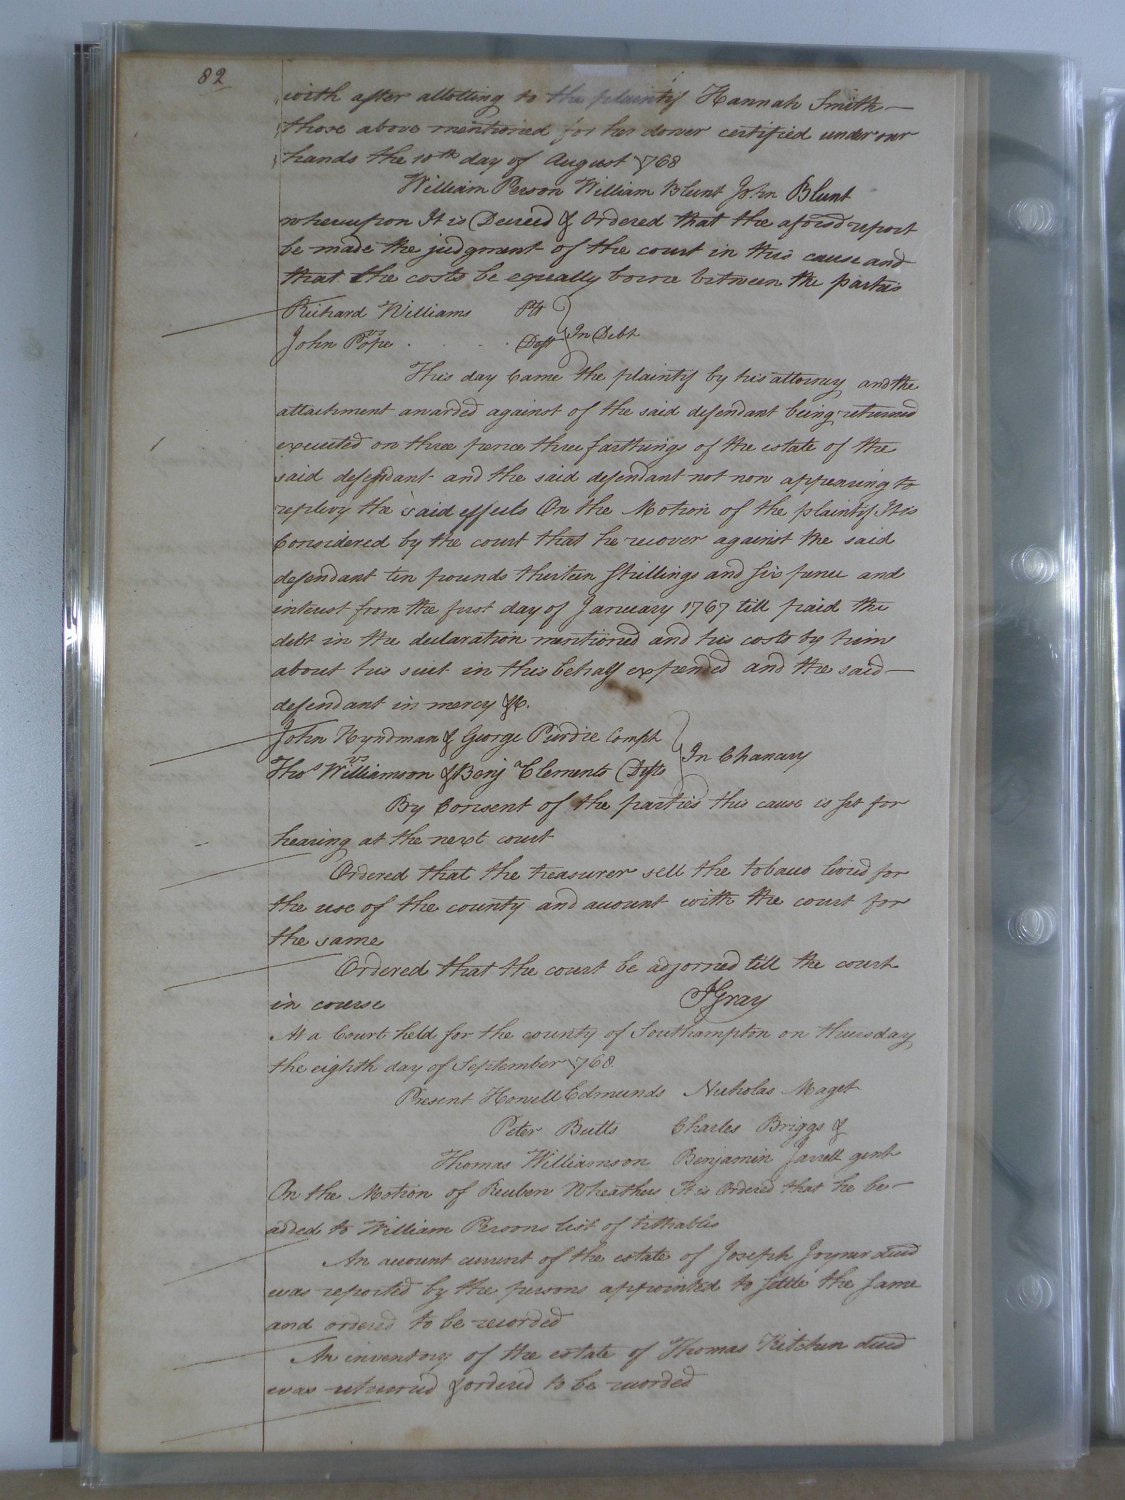 82
with after allotting to the plaintif Hannah Smith
those above mentioned for her dower certified under our
hands the 10th day of August 1768
William Person William Blunt John Blunt
whereupon It is Decreed & Ordered that the aforesd report
be made the judgment of the court in this cause and
that the costs be equally borne between the parties
Richard Williams Plt
vs
John Pope Deft In Debt
This day Came the plaintif by his attorney and the
attachment awarded against of the said defendant being returned
executed on three pence three farthings of the estate of the
said defendant and the said defendant not non appearing to
replevy the said effects On the Motion of the plaintif It is
Considered by the court that he recover against the said
defendant ten pounds thirteen Shillings and six pence and
interest from the first day of January 1767 till paid the
debt in the declaration mentioned and his costs by him
about his suit in this behalf expended and the said
defendant in mercy &c.
John Hyndman & George Purdie Complt
vs
Thos Williamson & Benj Clements Defts In Chancery
By Consent of the parties this cause is set for
hearing at the next court
Ordered that the treasurer sell the tobacco levied for
the use of the county and account with the court for
the same
Ordered that the court be adjorned till the court
in course
JGray
At a Court held for the county of Southampton on thursday
the eighth day of September 1768
Present Howell Edmunds Nicholas Maget
Peter Butts Charles Briggs &
Thomas Williamson Benjamin Jarrell gent
On the Motion of Reuben Wheathers It is Ordered that he be
added to William Persons list of tithables
An account current of the estate of Joseph Joyner decd
was reported by the persons appointed to settle the same
and ordered to be recorded
An inventory of the estate of Thomas Kitchen decd
was returned & ordered to be recorded